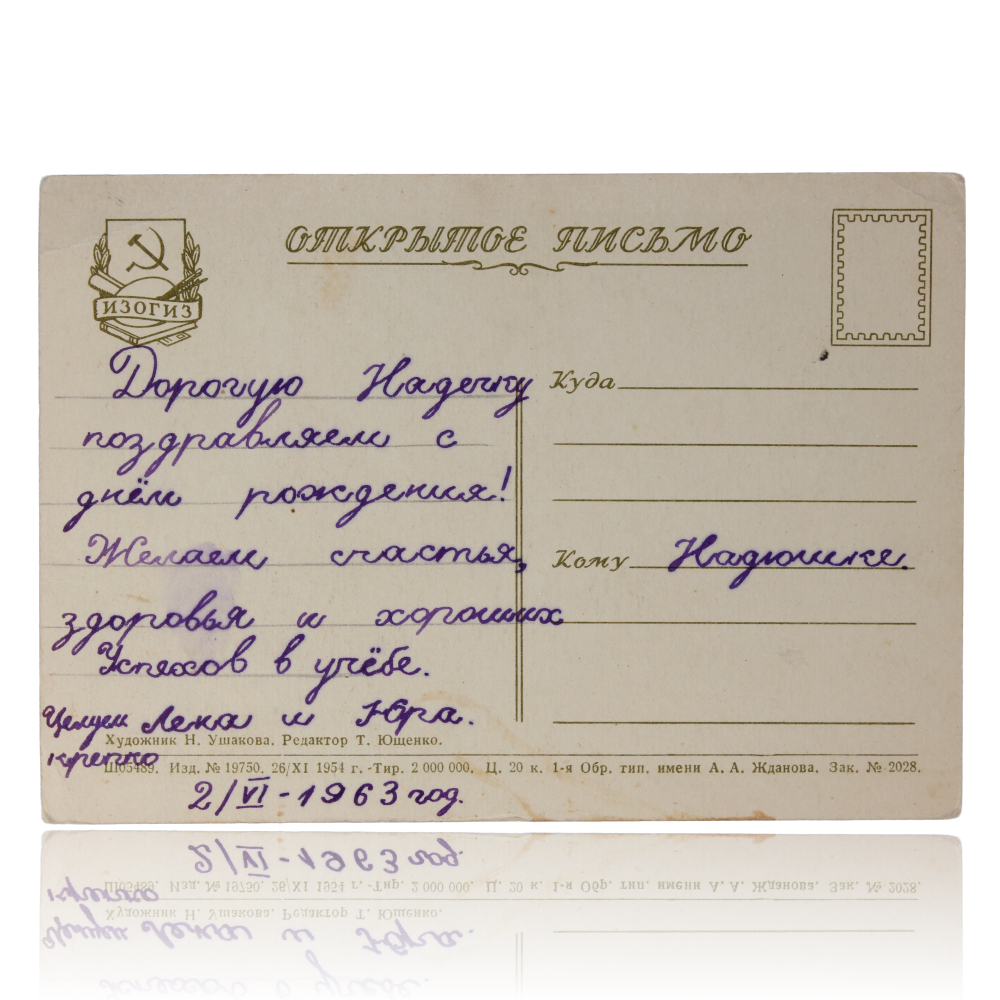 ОТКРЫТОЕ ПИСЬМО
ИЗОГИЗ
Дорогую Надечку
поздравляем с
днём рождения!
Желаем счастья,
здоровья и хороших
Успехов в учёбе.
Целуем Лена и Юра.
крепко
2/VI-1963 год.
Куда
Кому Надюшке.
Художник Н. Ушакова. Редактор Т. Ющенко.
Ш05489. Изд. № 19750, 26/XI 1954 г. -Тир. 2 000 000. Ц. 20 к. 1-я Обр. тип. имени А. А. Жданова, Зак. № 2028.